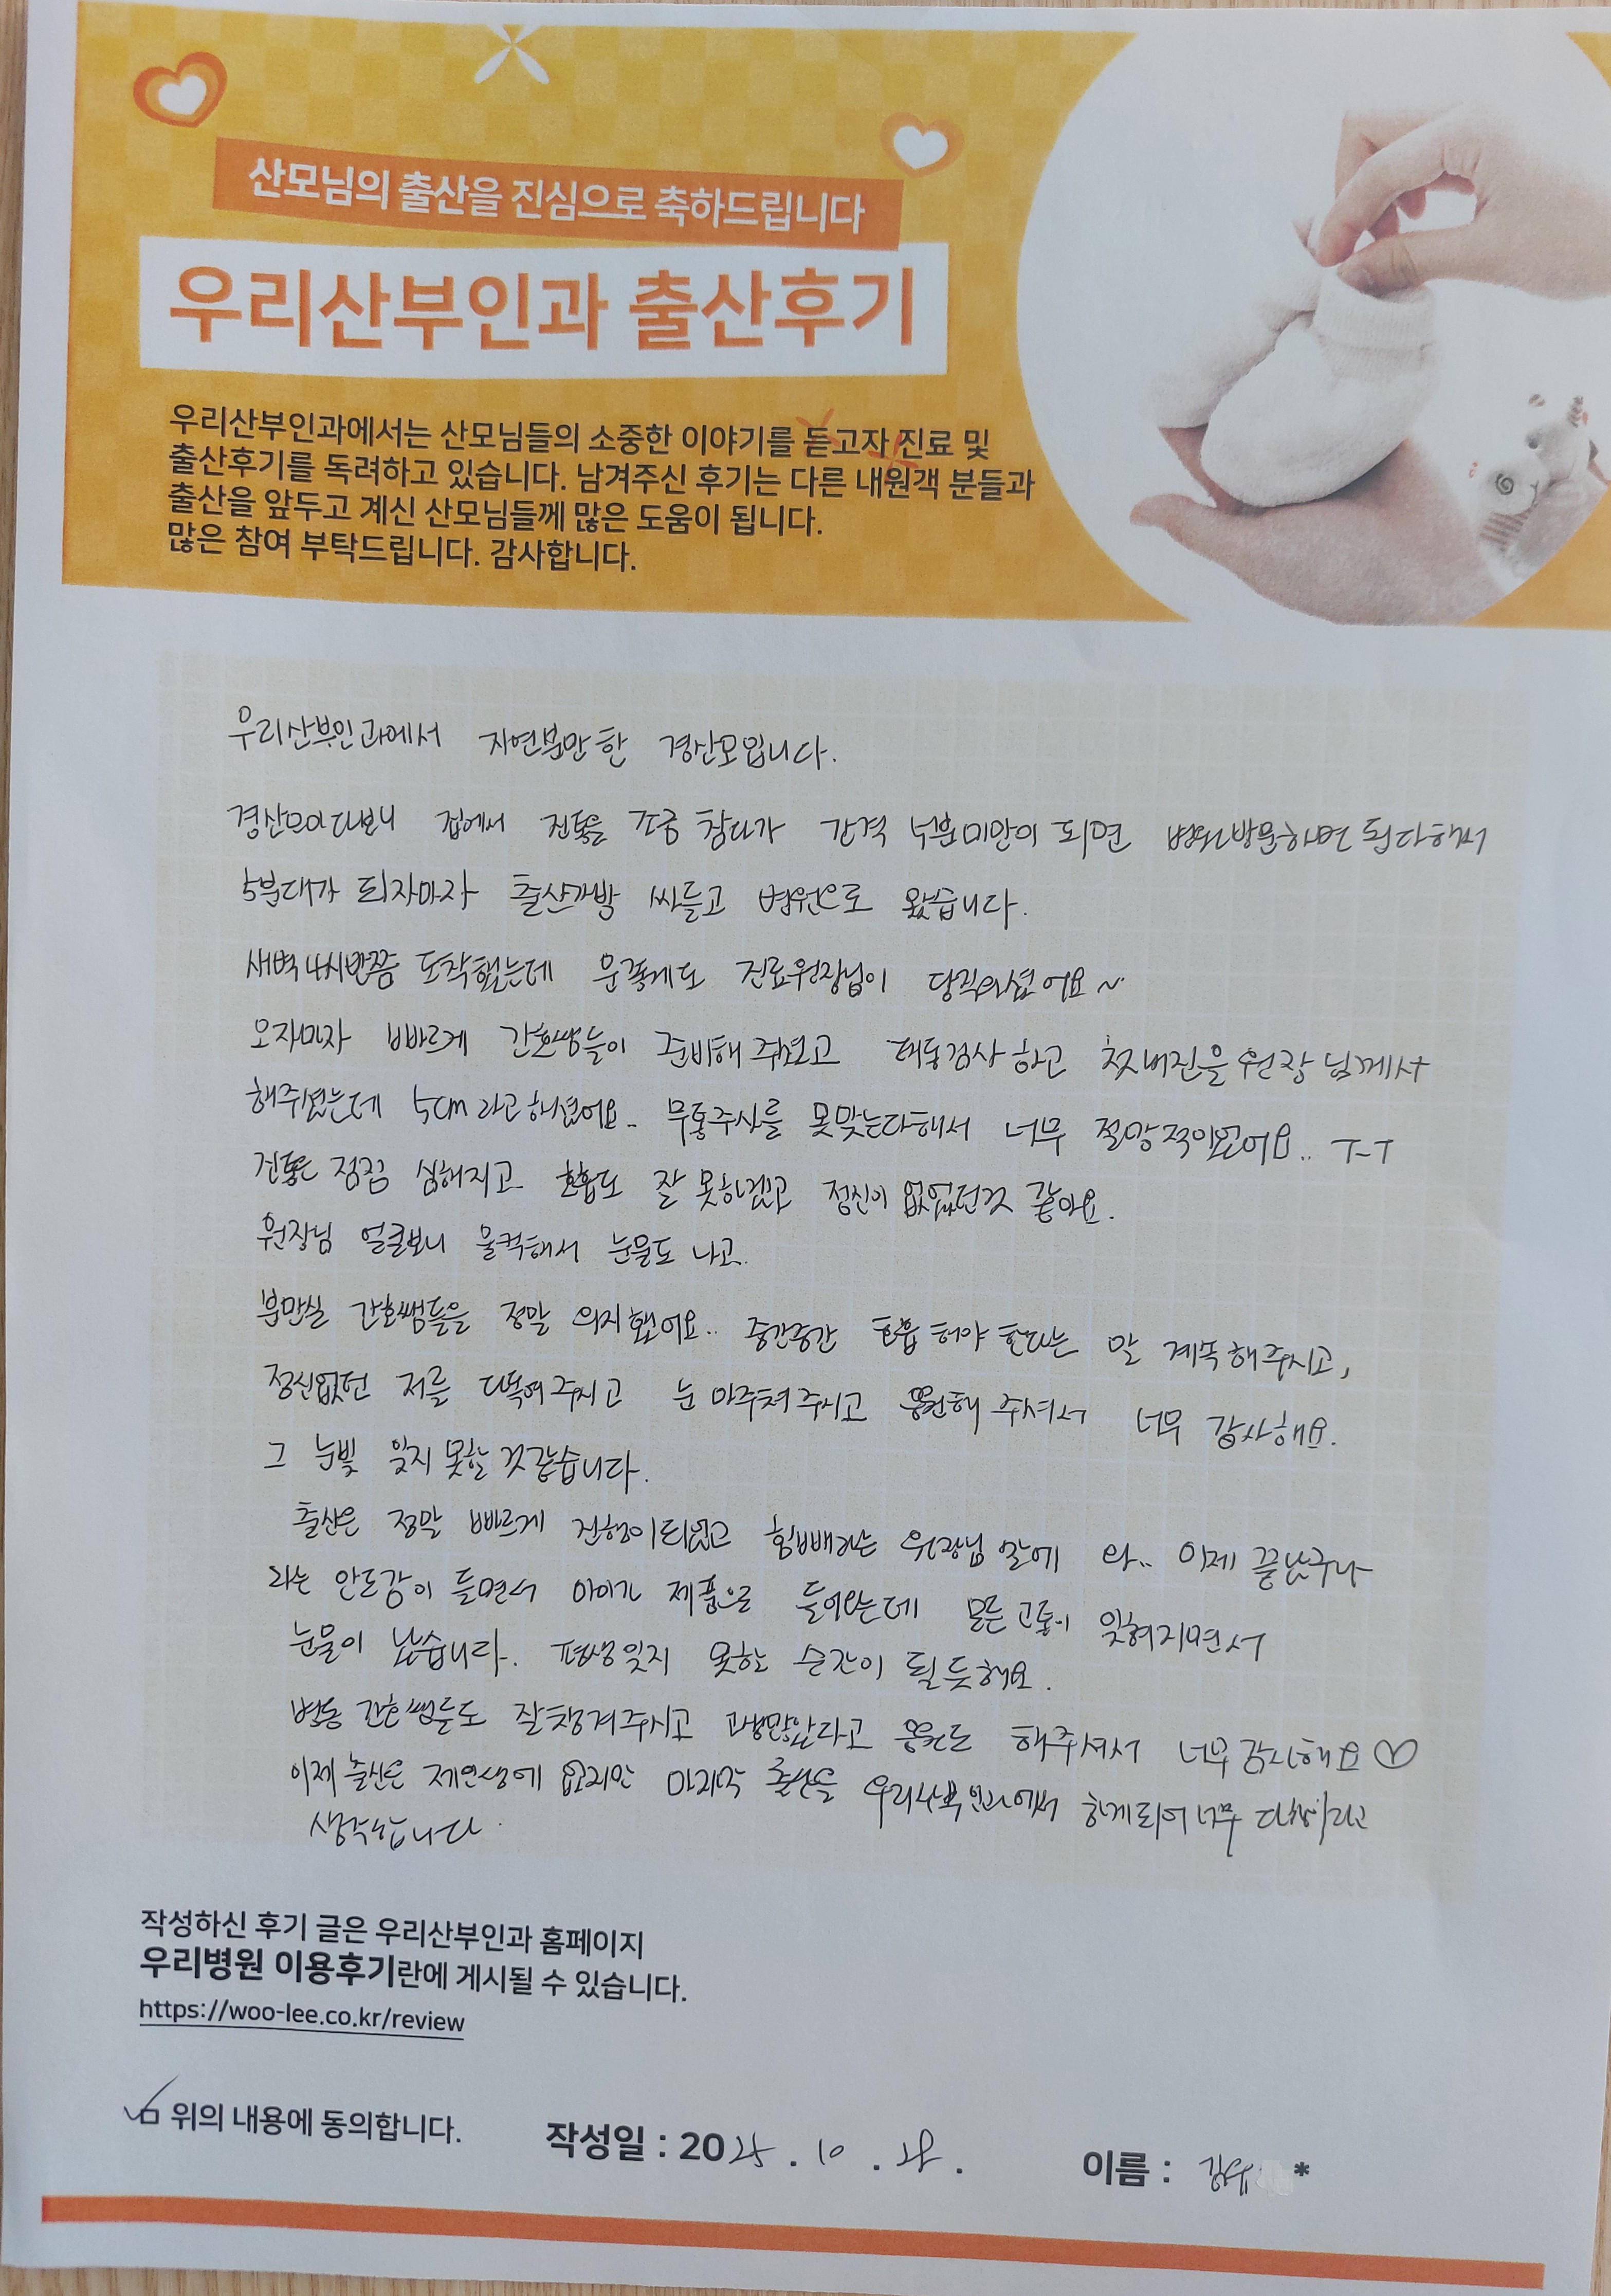 산모님의 출산을 진심으로 축하드립니다
우리산부인과 출산후기
우리산부인과에서는 산모님들의 소중한 이야기를 듣고자 진료 및
출산후기를 독려하고 있습니다. 남겨주신 후기는 다른 내원객 분들과
출산을 앞두고 계신 산모님들께 많은 도움이 됩니다.
많은 참여 부탁드립니다. 감사합니다.
우리산부인과에서 자연분만한 경산모입니다.
경산모이다보니 집에서 진통을 조금 참다가 간격 5분미만이 되면 병원방문하면 된다해서
5분대가 되자마자 출산가방 싸들고 병원으로 왔습니다.
새벽 4시반쯤 도착했는데 운좋게도 진료원장님이 당직이셨어요~
오자마자 빠르게 간호쌤들이 준비해 주셨고 태동검사 하고 첫내진을 원장님께서
해주셨는데 5cm라고 하셨어요.. 무통주사를 못맞는다해서 너무 절망적이였어요.. T-T
진통은 점점 심해지고 호흡도 잘 못하겠고 정신이 없었던것 같아요.
원장님 얼굴보니 울컥해서 눈물도 나고..
분만실 간호쌤들을 정말 의지했어요.. 중간중간 호흡 해야 한다는 말 계속해주시고,
정신없던 저를 다독여주시고 눈 마주쳐주시고 응원해 주셔서 너무 감사해요.
그 눈빛 잊지 못할 것같습니다.
출산은 정말 빠르게 진행이되었고 힘빼라는 원장님 말에 아.. 이제 끝났구나
라는 안도감이 들면서 아이가 제품으로 들어왔는데 모든 고통이 잊혀지면서
눈물이 났습니다. 평생잊지 못할 순간이 될 듯해요.
병동 간호쌤들도 잘챙겨주시고 고생많았다고 응원도 해주셔서 너무 감사해요♡
이제 출산은 제인생에 없지만 마지막 출산을 우리산부인과에서 하게되어 너무 다행이라고
생각합니다.
작성하신 후기 글은 우리산부인과 홈페이지
우리병원 이용후기란에 게시될 수 있습니다.
https://woo-lee.co.kr/review
위의 내용에 동의합니다. 작성일 : 2025 . 10 . 28 . 이름 : *